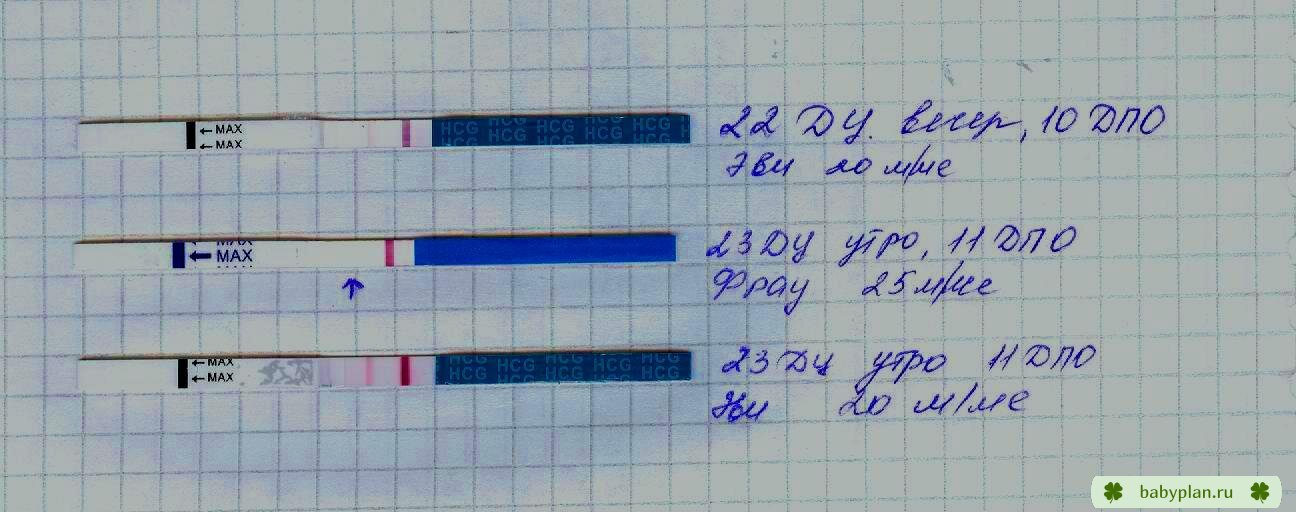 ← MAX
← MAX
HCG HCG HCG HCG HCG
HCG HCG HCG HCG
22 ДЦ. вечер, 10 ДПО
Эви 20 м/ме
MAX
← MAX
23 ДЦ утро, 11 ДПО
Фрау 25 м/ме
← MAX
← MAX
HCG HCG HCG HCG HCG
HCG HCG HCG HCG HCG
23 ДЦ утро 11 ДПО
Эви 20 м/ме
babyplan.ru